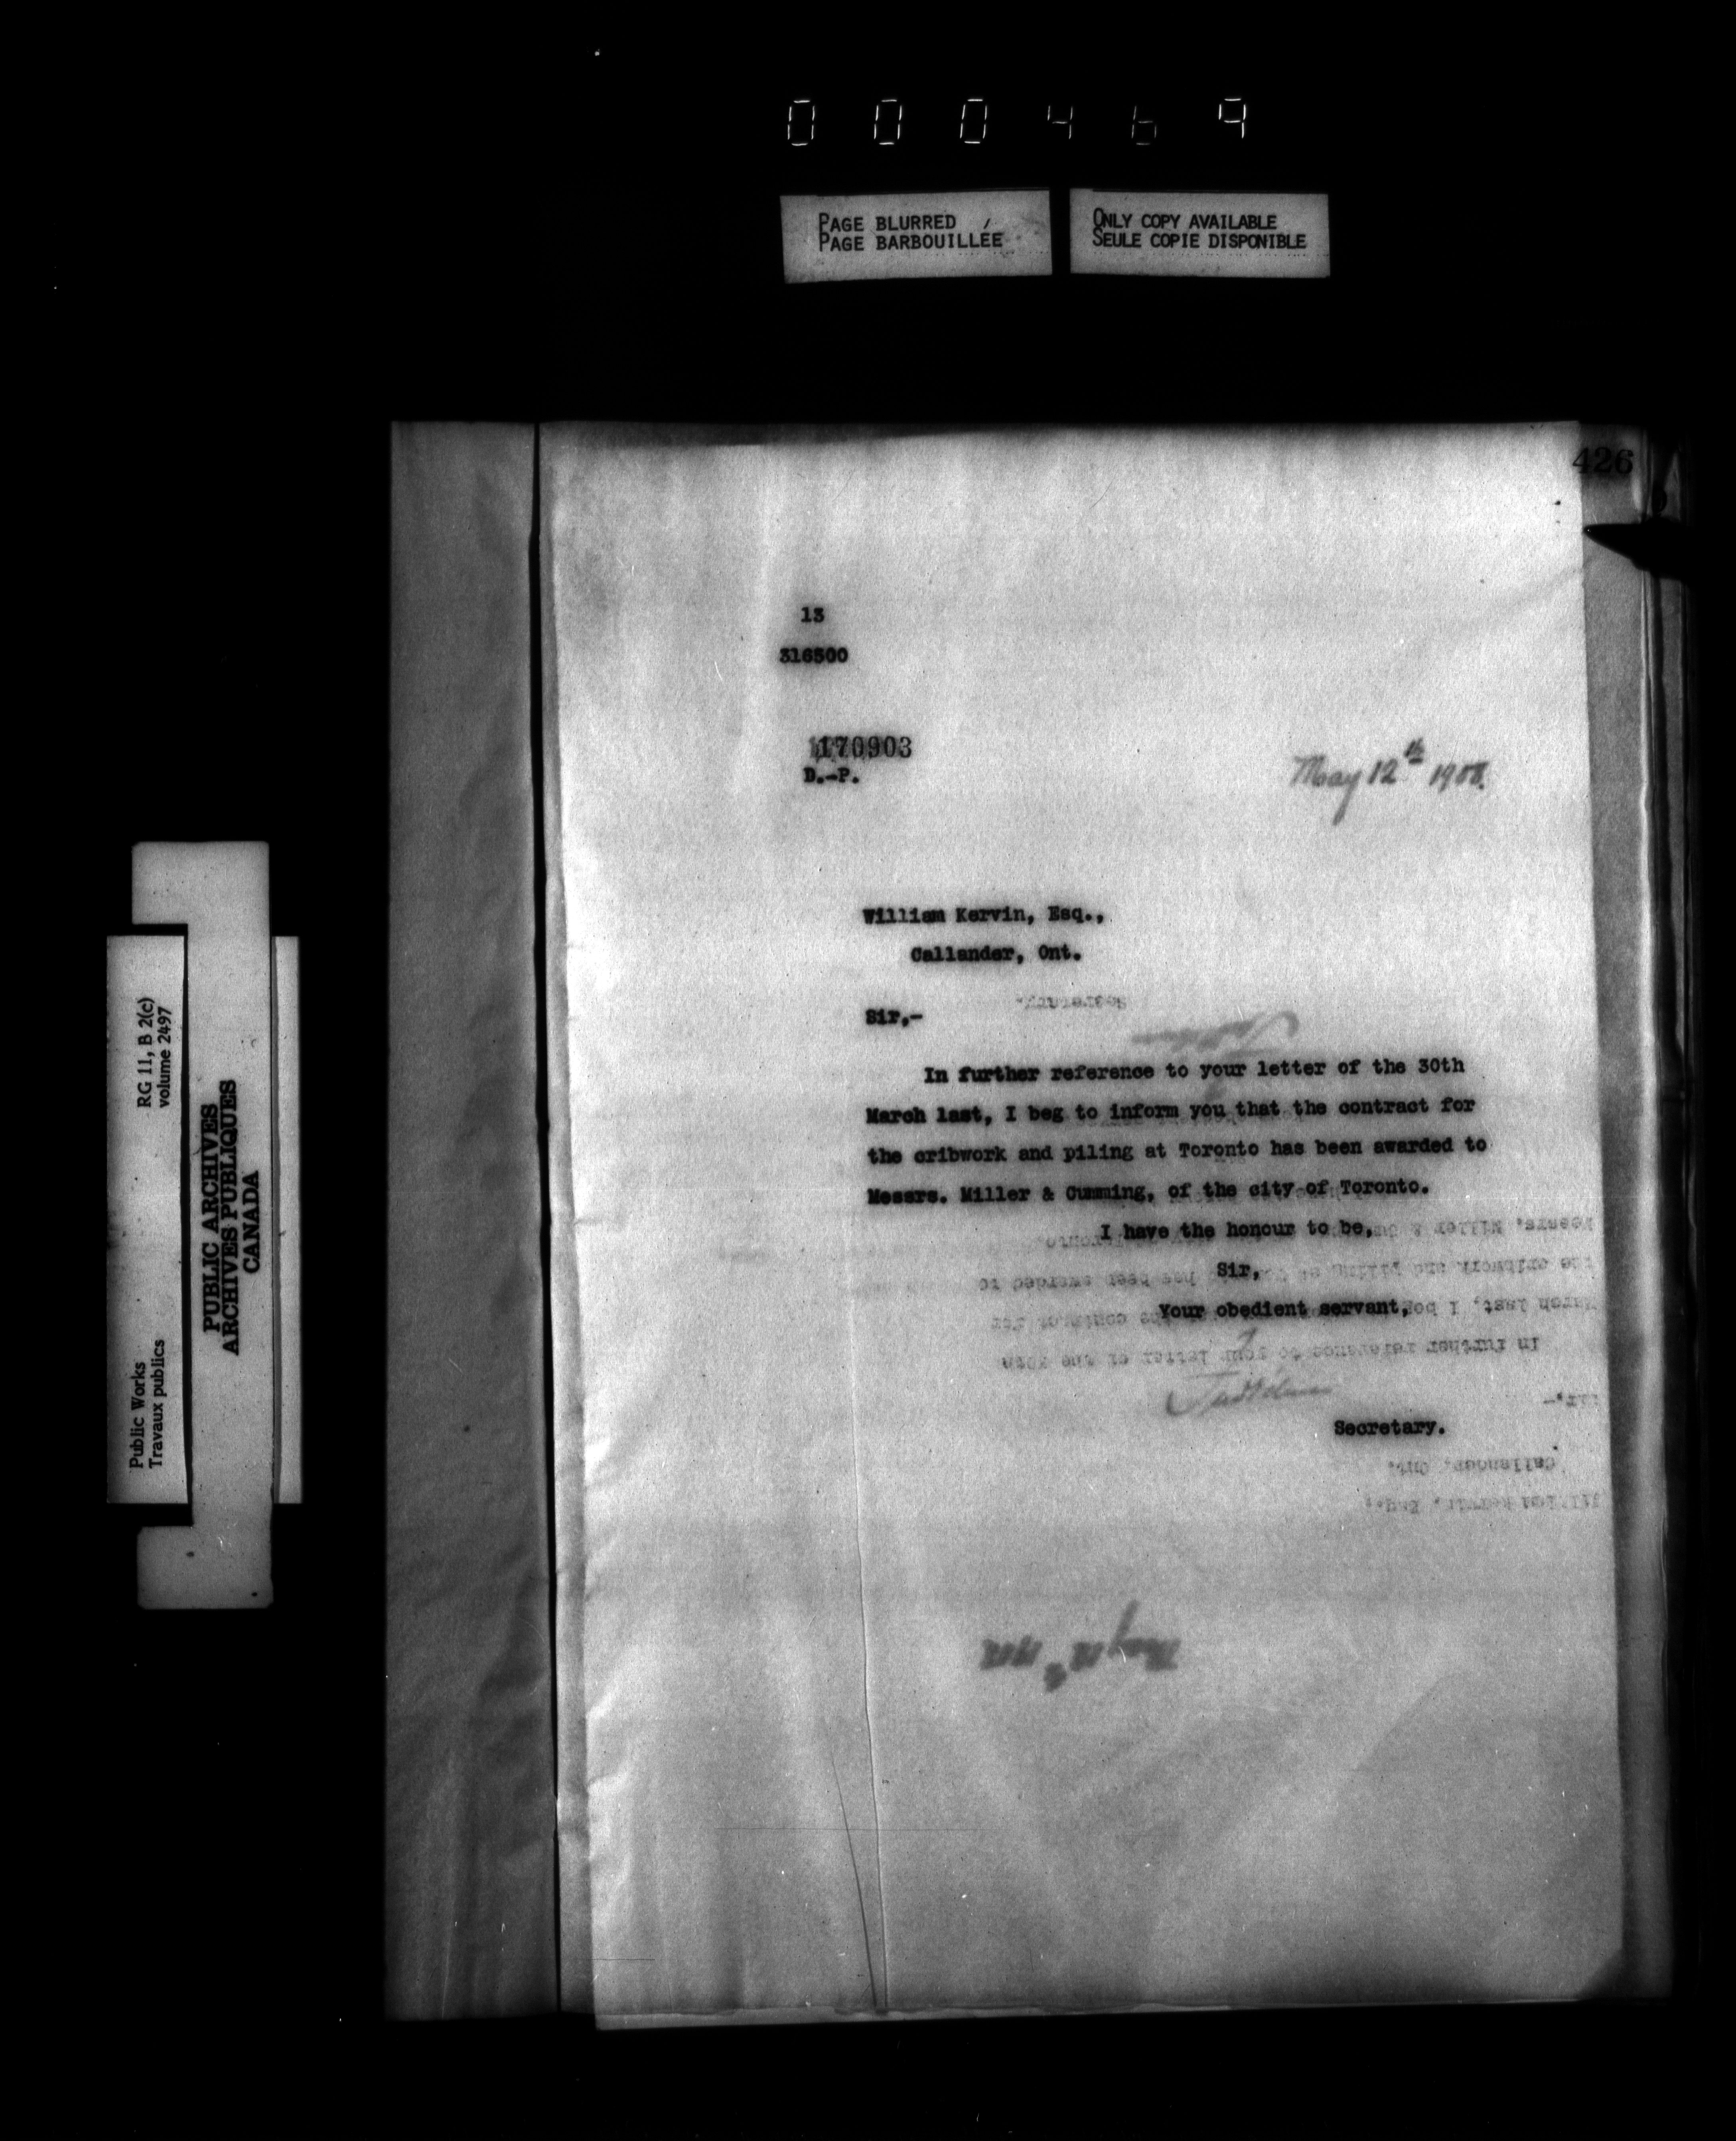 000469
PAGE BLURRED
PAGE BARBOUILLÉE
ONLY COPY AVAILABLE
SEULE COPIE DISPONIBLE
426
13
316500
170903
D.-P.
May 12th 1908.
William Kervin, Esq.,
Callander, Ont.
Sir,-
In further reference to your letter of the 30th
March last, I beg to inform you that the contract for
the cribwork and piling at Toronto has been awarded to
Messrs. Miller & Cumming, of the city of Toronto.
I have the honour to be,
Sir,
Your obedient servant,
Secretary.
RG 11, B 2(c)
volume 2497
Public Works
Travaux publics
PUBLIC ARCHIVES
ARCHIVES PUBLIQUES
CANADA